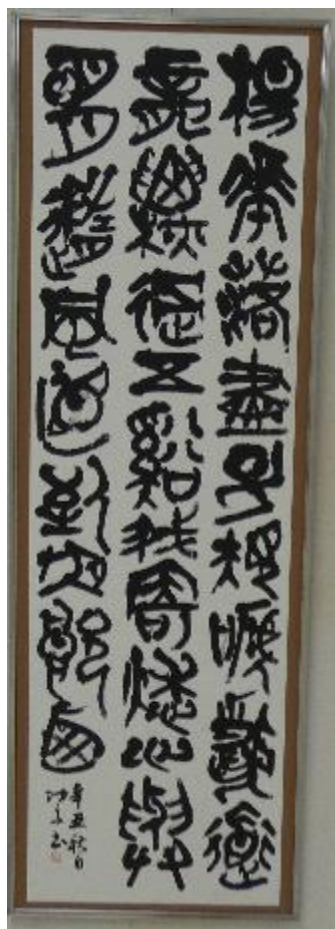 楊華落盡子規啼聞道
龍標過五谿我寄愁心與
明月隨風直到夜郎西
辛丑秋日
书